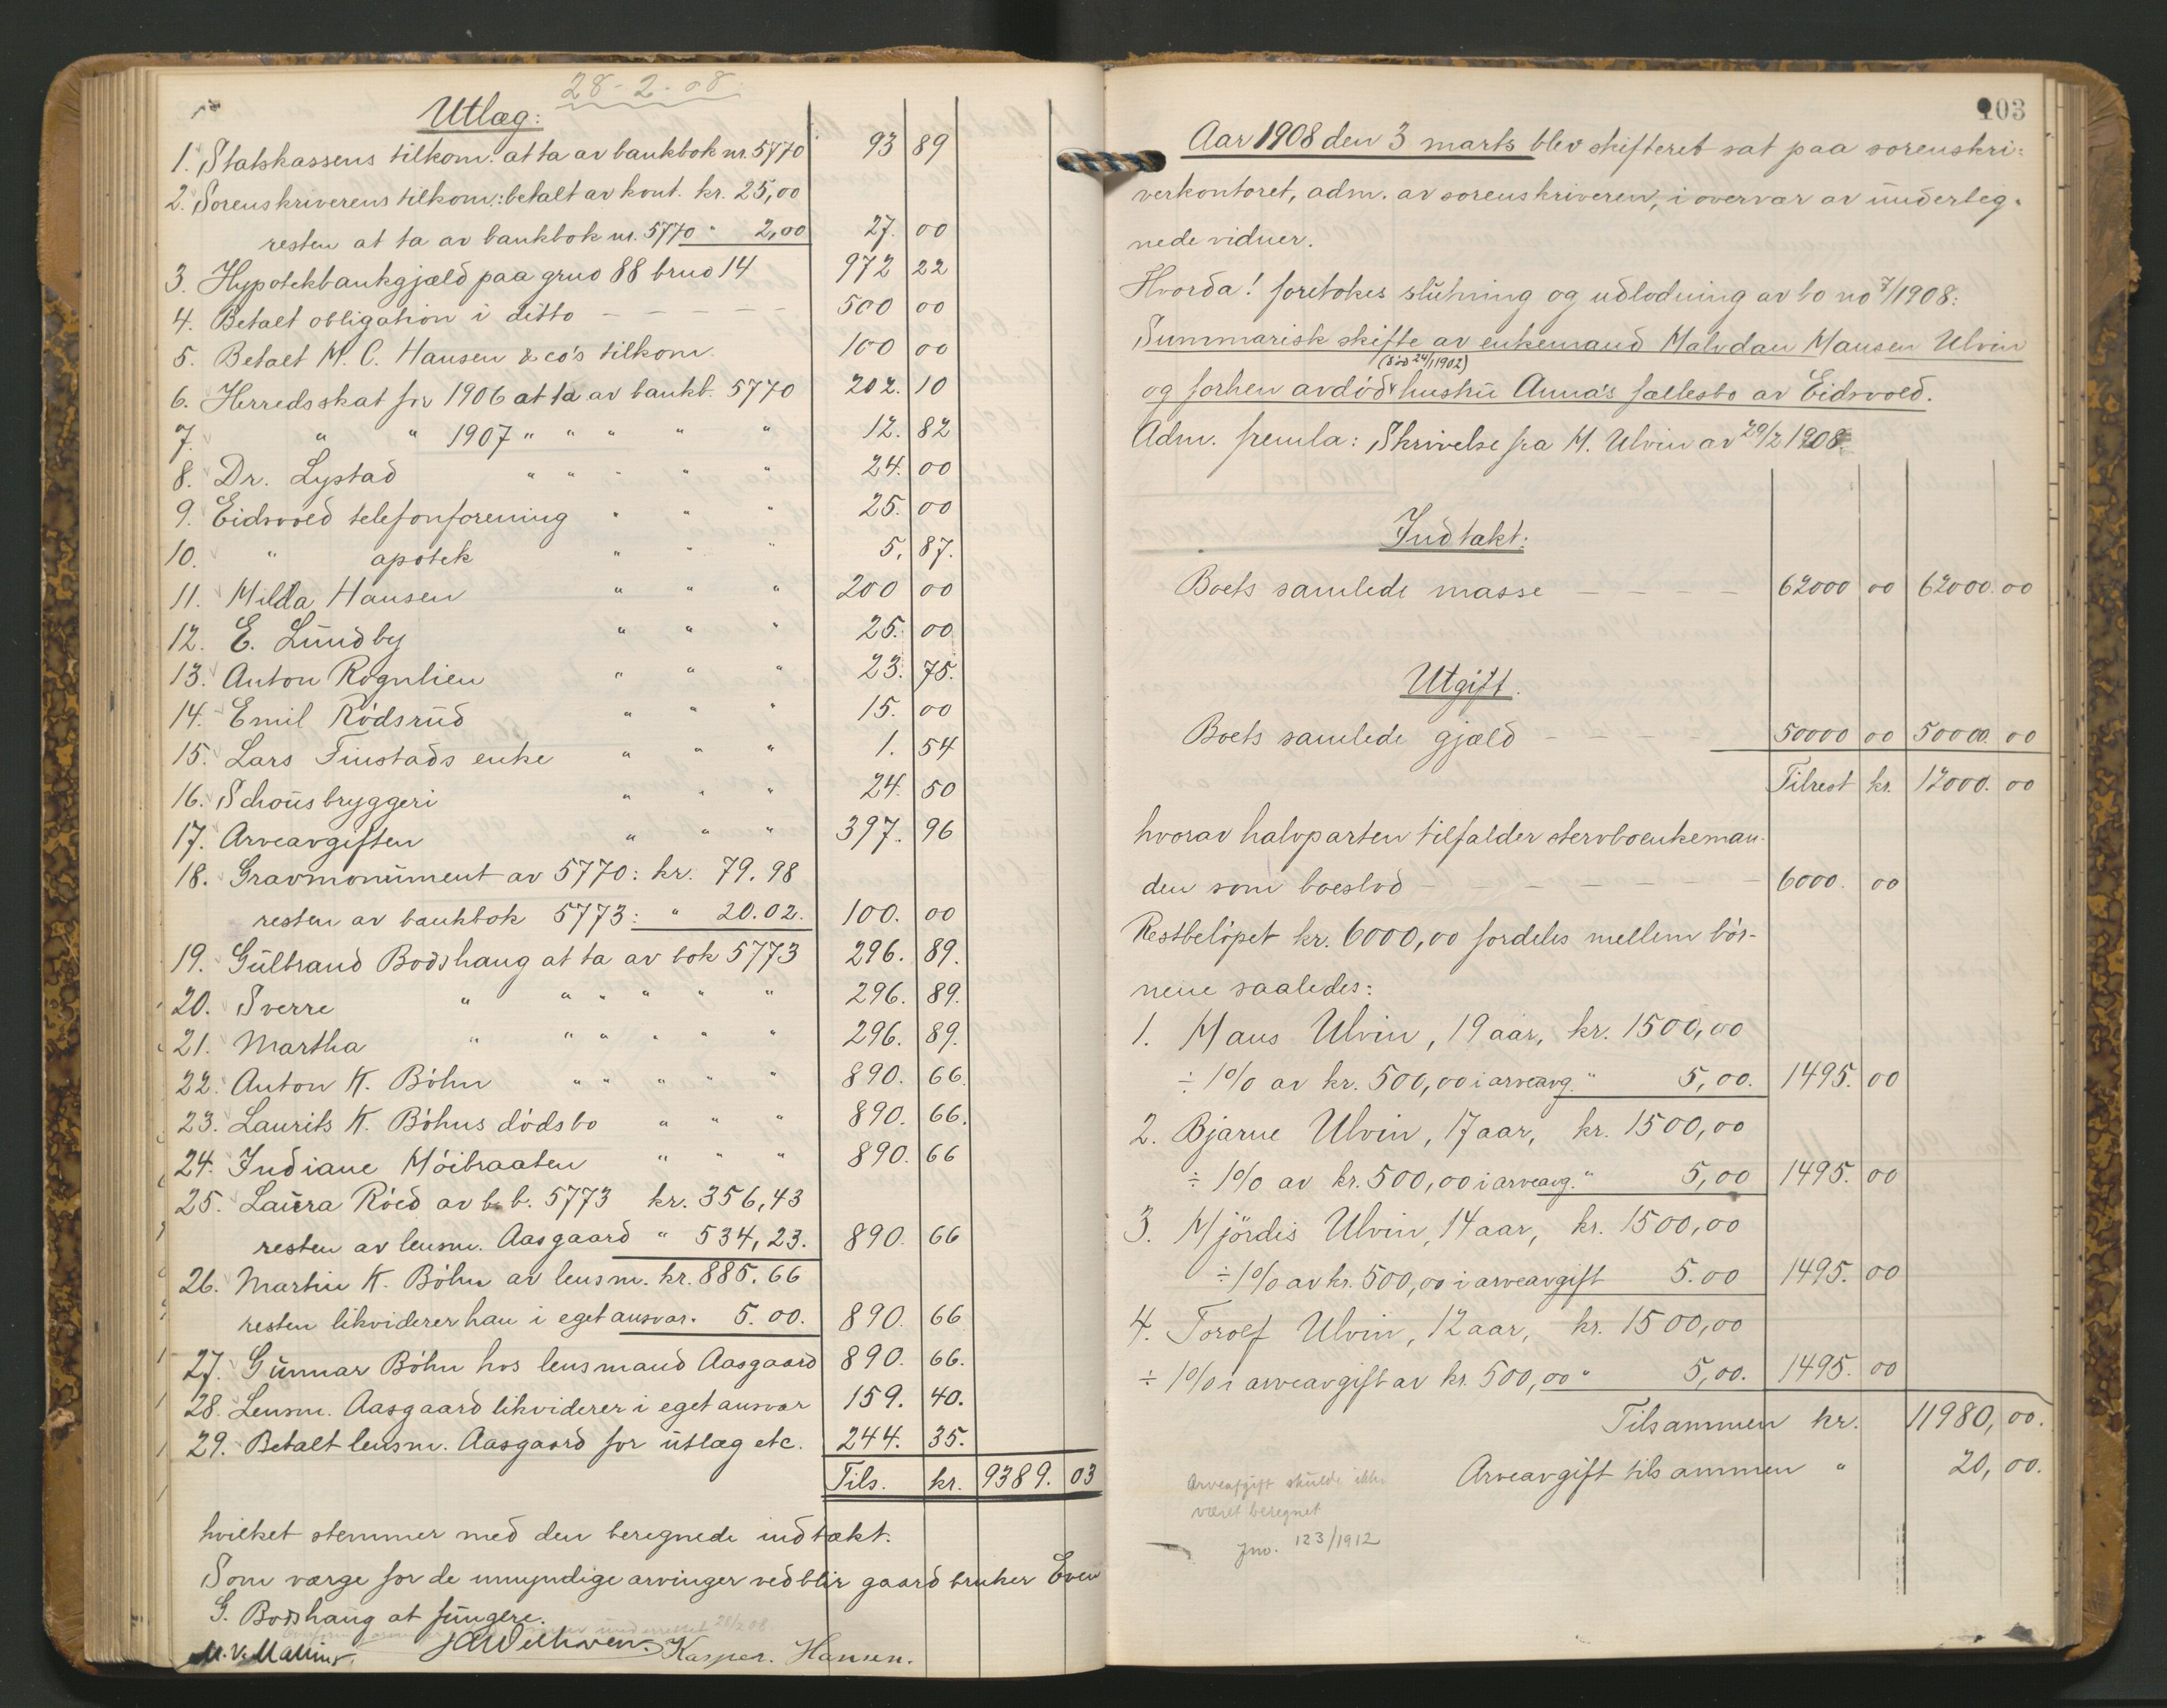 28-2-08.
Utlæg:
1. Statskassens tilkom. at ta av bankbok nr. 5770 93 89
2. Sorenskriverens tilkom.: betalt av kont. kr. 25,00
resten at ta av bankbok nr. 5770 " 2,00 27. 00
3. Hypotekbankgjæld paa gruo 88 bruo 14 972 22
4. Betalt obligation i ditto – – – – – 500 00
5. Betalt M. C. Hansen & co's tilkom. 100 00
6. Herredsskat for 1906 at ta av bankb. 5770 202. 10
7. " " 1907 " " " " " 12. 82
8. Dr. Lystad " " " " " 24. 00
9. Eidsvold telefonforening " " " 25. 00
10. " apotek " " " 5, 87.
11. Hilda Hansen " " " 200 00
12. E. Lundby " " " 25. 00
13. Anton Rognlien " " " 23. 75.
14. Emil Rödsrud " " " 15. 00
15. Lars Finstads enke " " " 1. 54
16. Schous bryggeri " " " 24. 50
17. Arveavgiften " " " 397. 96
18. Gravmonument av 5770: kr. 79.98
resten av bankbok 5773: " 20.02. 100. 00
19. Gulbrand Bodshaug at ta av bok 5773 296. 89.
20. Sverre " " " " " " 296. 89.
21. Martha " " " " " " 296. 89.
22. Anton K. Böhn " " " " " 890. 66.
23. Laurits K. Böhns dödsbo " " " 890. 66.
24. Indiane Möibraaten " " " 890. 66
25. Laura Röed av b.b. 5773 kr. 356,43
resten av lensm. Aasgaard " 534,23. 890. 66
26. Martin K. Böhn av lensm. kr. 885.66
resten likviderer han i eget ansvar. 5.00. 890. 66
27. Gunnar Böhn hos lensmand Aasgaard 890. 66.
28. Lensm. Aasgaard likviderer i eget ansvar 159. 40.
29. Betalt lensm. Aasgaard for utlæg etc. 244. 35.
Tils. kr. 9389. 03
hvilket stemmer med den beregnede indtækt.
Som værge for de umyndige arvinger vedblir gaardbruker Even
G. Bodshaug at fungere.
underrettet 28/2 08.
Kasper. Hansen.
103
Aar 1908 den 3 marts blev skifteret sat paa sorenskri-
verkontoret, adm. av sorenskriveren, i overvær av underteg-
nede vidner.
Hvorda! foretokes slutning og udlodning av bo no 7/1908:
Summarisk skifte av enkemand Halvdan Hansen Ulvin
(död 24/1 1902)
og forhen avdöd hustru Anna's fællesbo av Eidsvold.
Adm. fremla: Skrivelse fra H. Ulvin av 29/2 1908
Indtækt:
Boets samlede masse – – – – 62000 00 62000. 00
Utgift.
Boets samlede gjæld – – – – 50000 00 50000. 00
Tilrest kr. 12000. 00
hvorav halvparten tilfalder stervboenkeman-
den som boeslod – – – – – – – 6000. 00
Restbelöpet kr. 6000,00 fordeles mellem bör-
nene saaledes:
1. Hans Ulvin, 19 aar, kr. 1500,00
÷ 1% av kr. 500,00 i arveavg. " 5,00. 1495. 00
2. Bjarne Ulvin, 17 aar, kr. 1500,00
÷ 1% av kr. 500,00 i arveavg. " 5,00 1495. 00
3. Hjördis Ulvin, 14 aar, kr. 1500,00
÷ 1% av kr. 500,00 i arveavgift 5.00 1495. 00
4. Torolf Ulvin, 12 aar, kr. 1500,00
÷ 1% i arveavgift av kr. 500,00 " 5,00. 1495. 00
Tilsammen kr. 11980,00.
Arveavgift tilsammen " 20,00.
Arveafgift skulde ikke
været beregnet
Jno. 123/1912